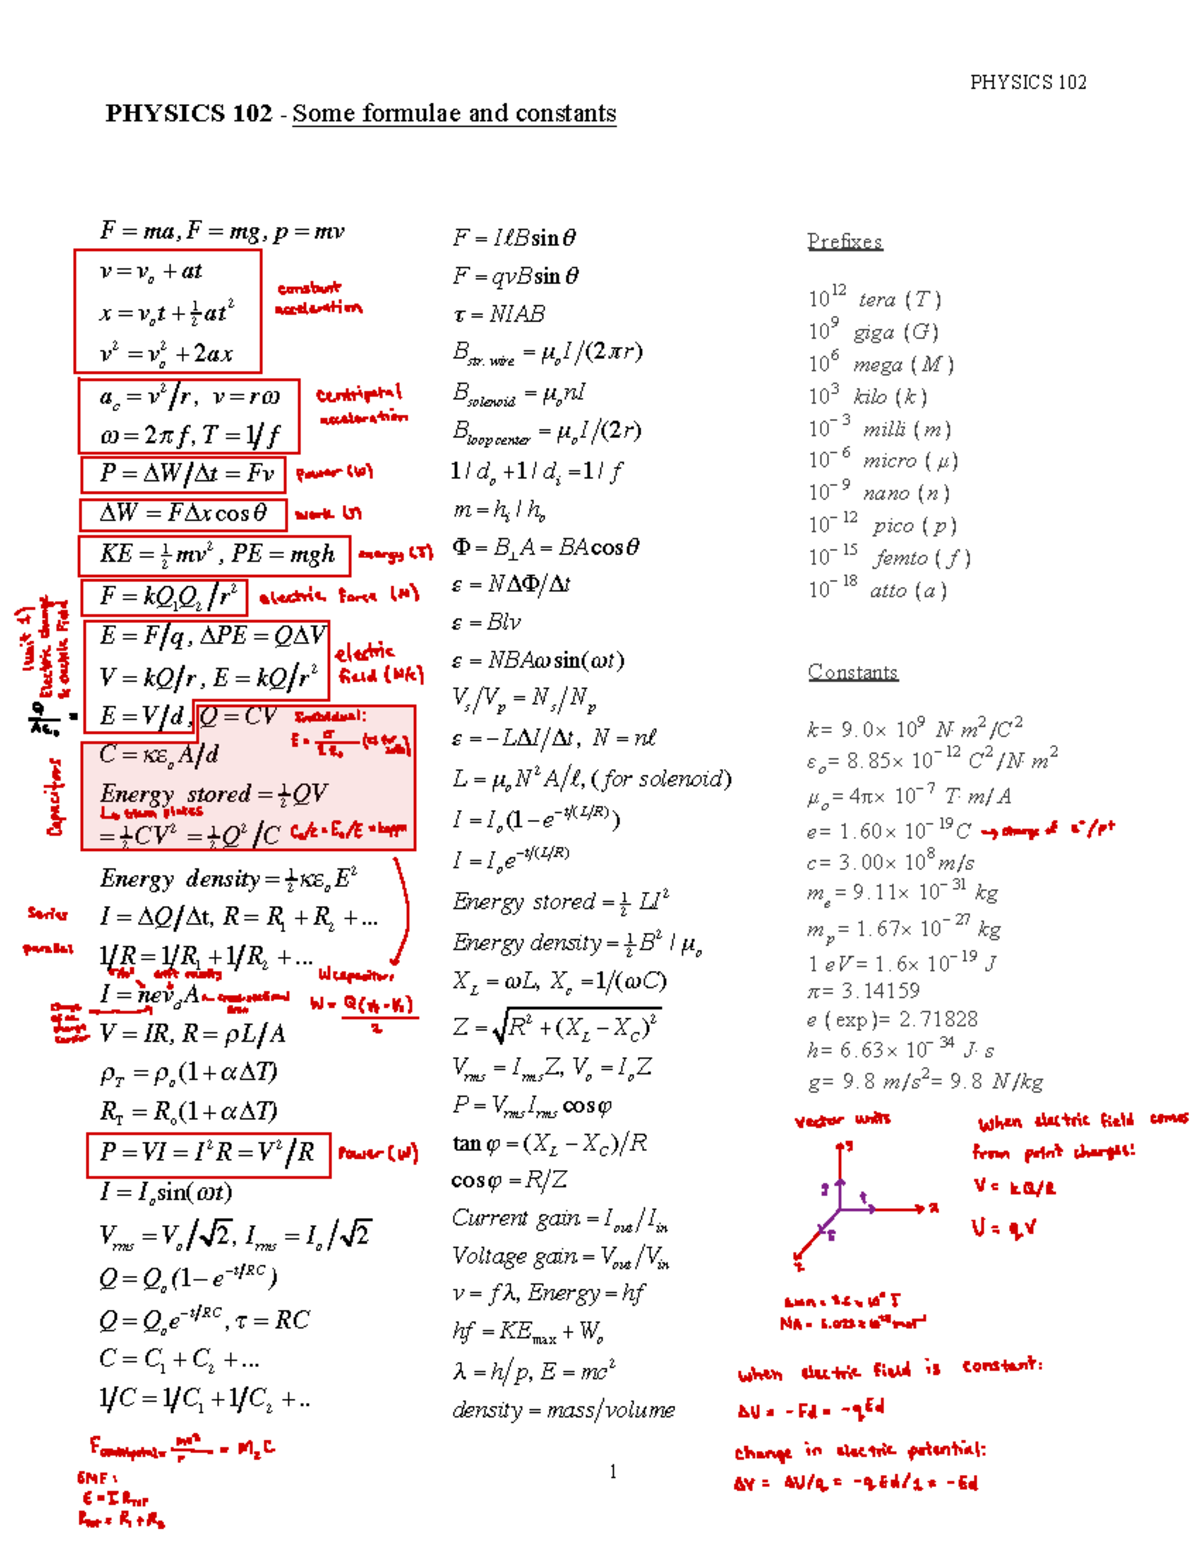 PHYSICS 102
PHYSICS 102 - Some formulae and constants
F = ma, F = mg, p = mv
v = v₀ + at
x = v₀t + ½at²
v² = v₀² + 2ax
constant
acceleration
a_c = v²/r, v = rω
ω = 2πf, T = 1/f
centripetal
acceleration
P = ΔW/Δt = Fv
Power (W)
ΔW = FΔx cos θ
work (J)
KE = ½mv², PE = mgh
energy (J)
F = kQ₁Q₂/r²
electric force (N)
E = F/q, ΔPE = QΔV
V = kQ/r, E = kQ/r²
electric
field (N/C)
E = V/d, Q = CV
C = κε₀A/d
Energy stored = ½QV
= ½CV² = ½Q²/C
(unit 1)
Electric charge
& electric field
Q/Aε₀ =
Capacitors
Individual:
Energy density = ½κε₀E²
Series
I = ΔQ/Δt, R = R₁ + R₂ + ...
parallel
1/R = 1/R₁ + 1/R₂ + ...
I = nev_dA
W capacitor:
V = IR, R = ρL/A
ρ_T = ρ₀(1 + αΔT)
R_T = R₀(1 + αΔT)
P = VI = I²R = V²/R
Power (W)
I = I₀ sin(ωt)
V_rms = V₀/√2, I_rms = I₀/√2
Q = Q₀(1 − e^(−t/RC))
Q = Q₀e^(−t/RC), τ = RC
C = C₁ + C₂ + ...
1/C = 1/C₁ + 1/C₂ + ..
EMF:
R_tot = R₁ + R₂
F = IℓB sin θ
F = qvB sin θ
τ = NIAB
B_str. wire = μ₀I/(2πr)
B_solenoid = μ₀nI
B_loop center = μ₀I/(2r)
1/d₀ + 1/d_i = 1/f
m = h_i / h₀
Φ = B⊥A = BA cos θ
ε = NΔΦ/Δt
ε = Blv
ε = NBAω sin(ωt)
V_s/V_p = N_s/N_p
ε = −LΔI/Δt, N = nℓ
L = μ₀N²A/ℓ, (for solenoid)
I = I₀(1 − e^(−t/(L/R)))
I = I₀e^(−t/(L/R))
Energy stored = ½ LI²
Energy density = ½B² / μ₀
X_L = ωL, X_c = 1/(ωC)
Z = √(R² + (X_L − X_C)²)
V_rms = I_rmsZ, V₀ = I₀Z
P = V_rmsI_rms cos φ
tan φ = (X_L − X_C)/R
cos φ = R/Z
Current gain = I_out/I_in
Voltage gain = V_out/V_in
v = fλ, Energy = hf
hf = KE_max + W₀
λ = h/p, E = mc²
density = mass/volume
Prefixes
10¹² tera (T)
10⁹ giga (G)
10⁶ mega (M)
10³ kilo (k)
10⁻³ milli (m)
10⁻⁶ micro (μ)
10⁻⁹ nano (n)
10⁻¹² pico (p)
10⁻¹⁵ femto (f)
10⁻¹⁸ atto (a)
Constants
k = 9.0× 10⁹ N·m²/C²
ε₀ = 8.85× 10⁻¹² C²/N·m²
μ₀ = 4π× 10⁻⁷ T·m/A
e = 1.60× 10⁻¹⁹ C → charge of e⁻/p+
c = 3.00× 10⁸ m/s
m_e = 9.11× 10⁻³¹ kg
m_p = 1.67× 10⁻²⁷ kg
1 eV = 1.6× 10⁻¹⁹ J
π = 3.14159
e (exp) = 2.71828
h = 6.63× 10⁻³⁴ J·s
g = 9.8 m/s² = 9.8 N/kg
Vector units
When electric field comes
from point charges:
V = kQ/R
U = qV
When electric field is constant:
ΔU = −Fd = −qEd
Change in electric potential:
ΔV = ΔU/q = −qEd/q = −Ed
1